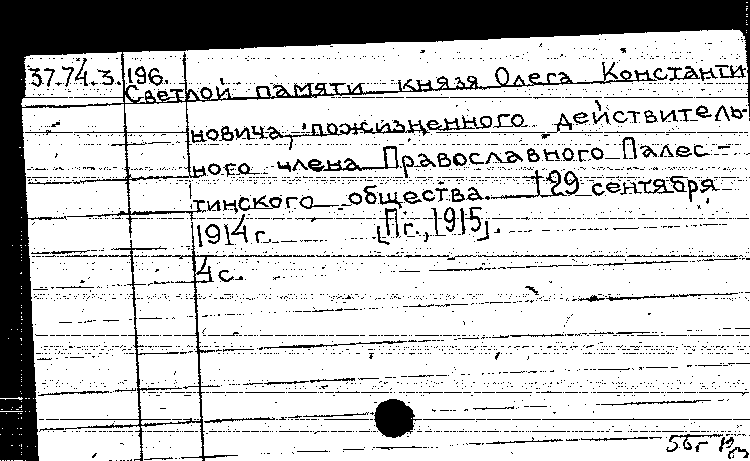 37.74.3.196.
Светлой памяти князя Олега Константи
новича, пожизненного действитель-
ного члена Православного Палес-
тинского общества. †29 сентября
1914 г. [Пг., 1915].
4 с.
56г